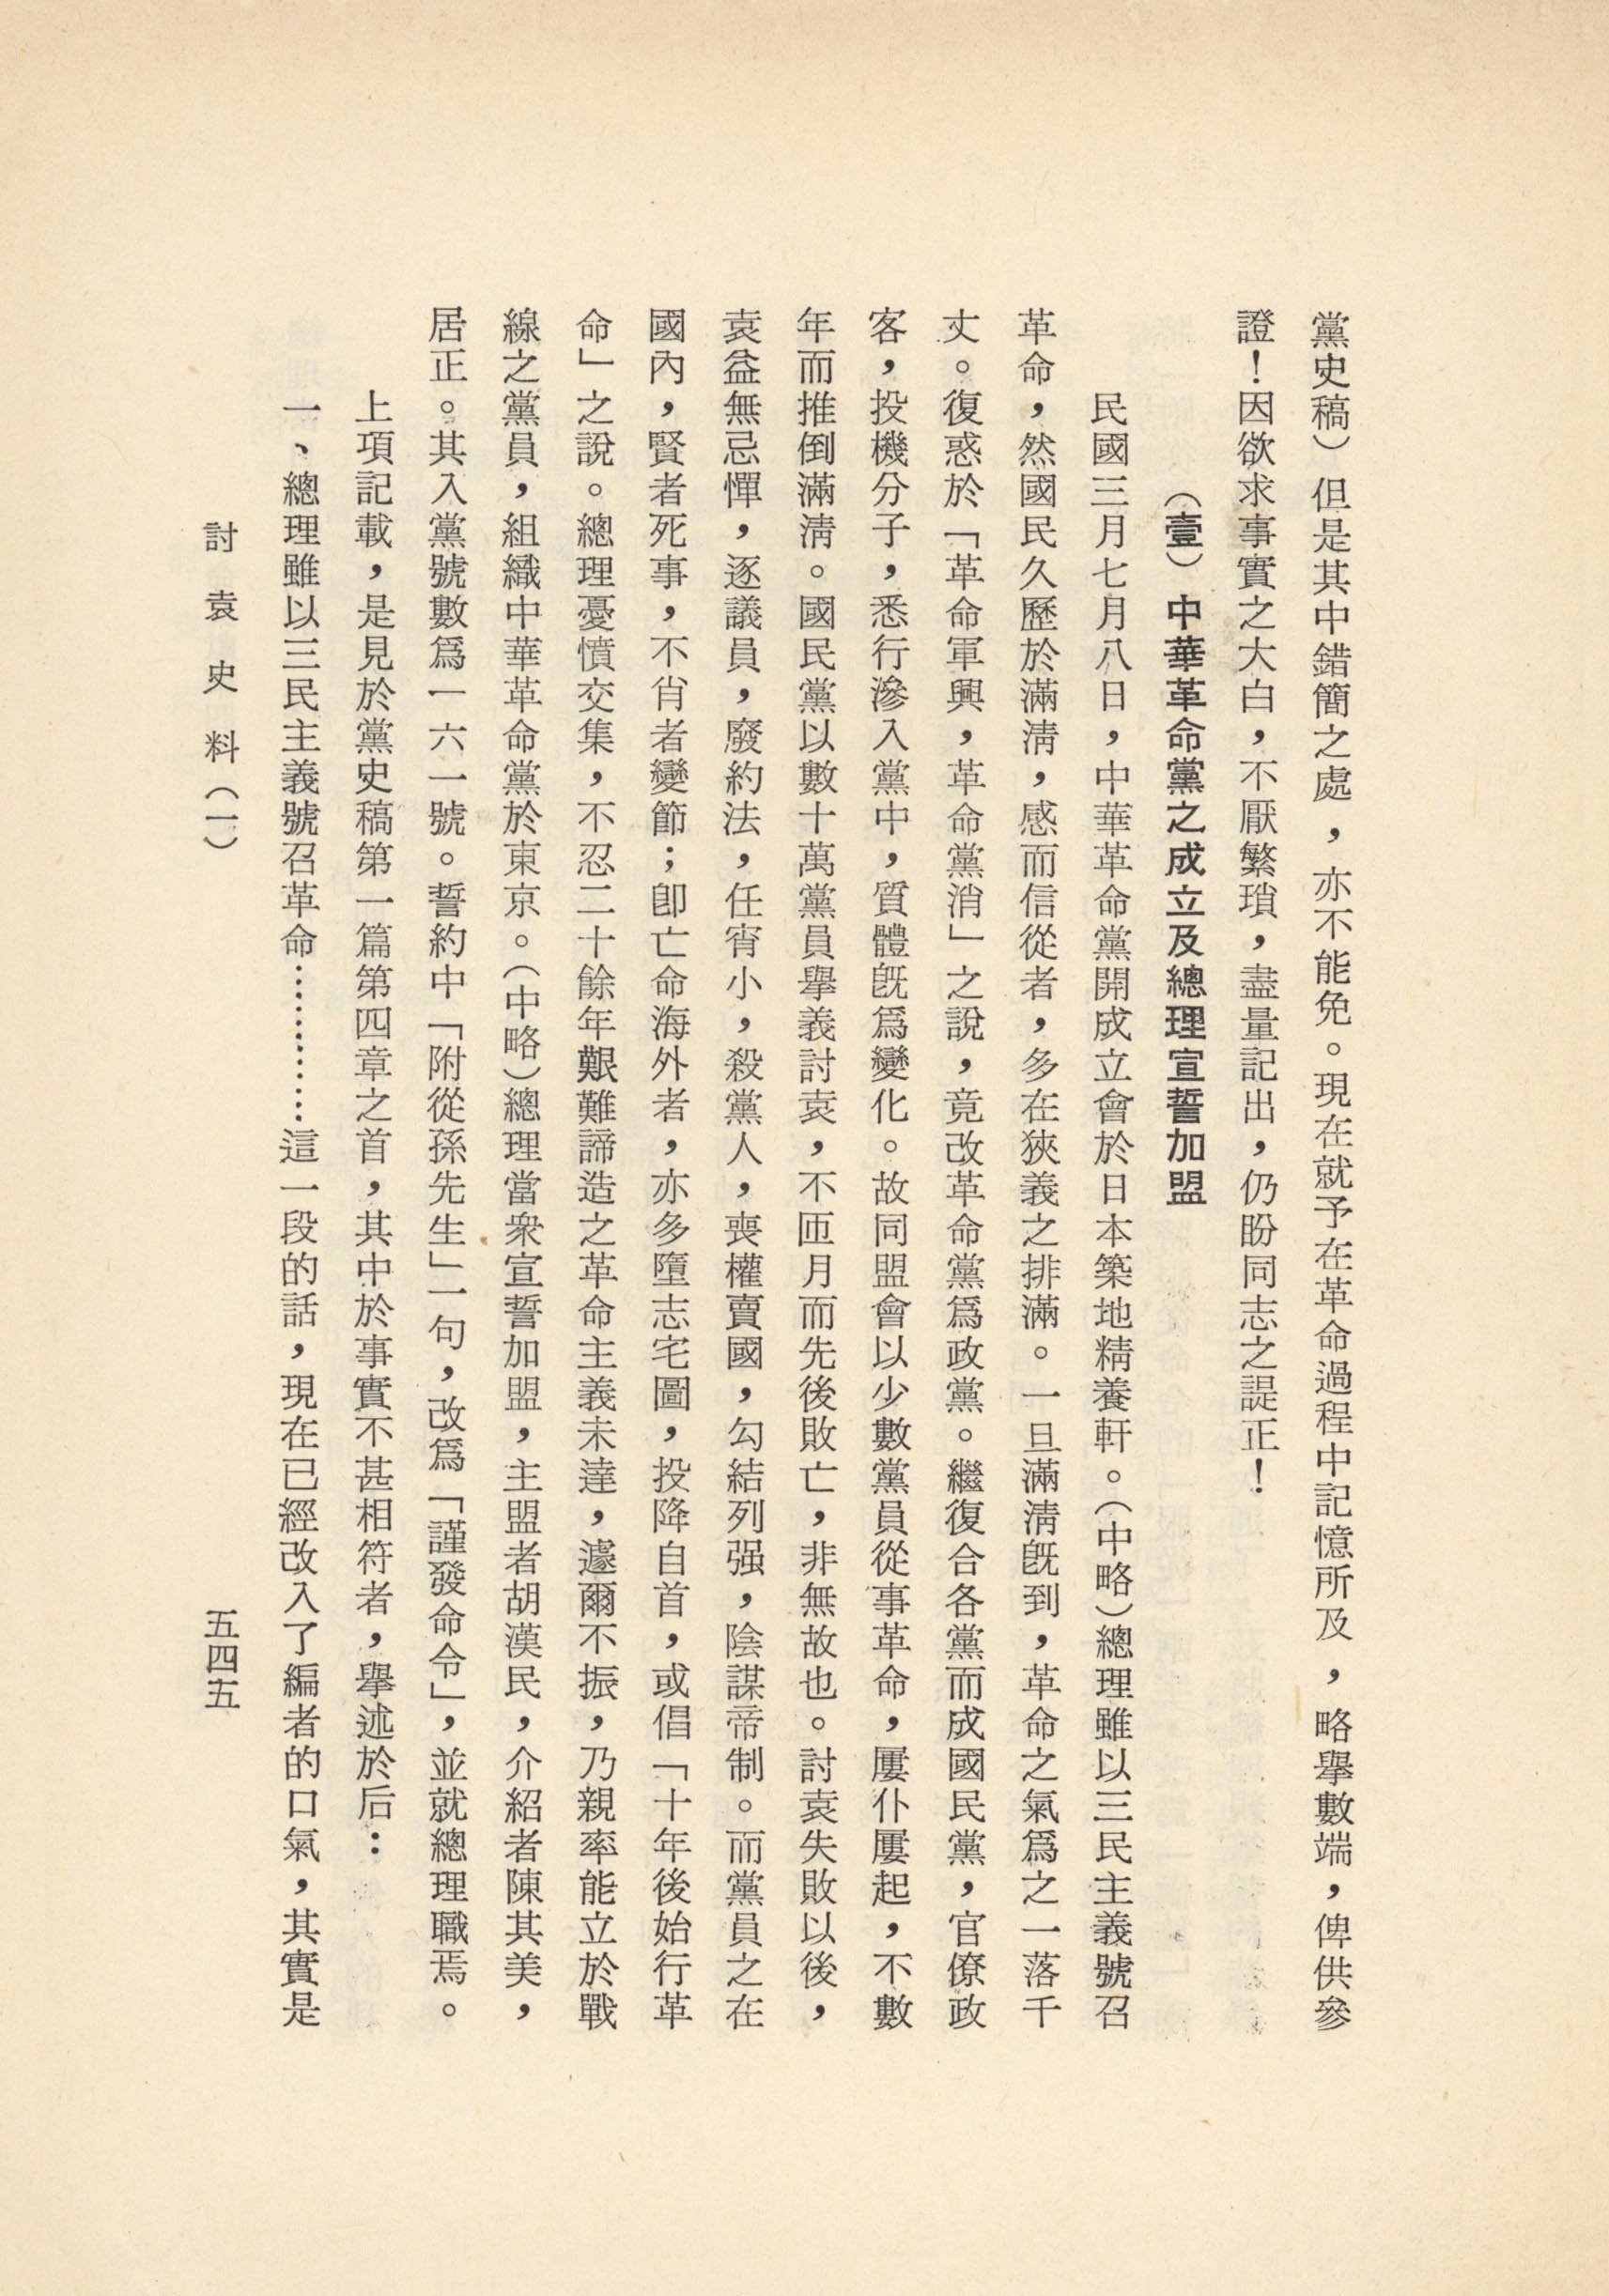 黨史稿）但是其中錯簡之處，亦不能免。現在就予在革命過程中記憶所及，略舉數端，俾供參
證！因欲求事實之大白，不厭繁瑣，盡量記出，仍盼同志之諟正！
（壹）中華革命黨之成立及總理宣誓加盟
民國三月七月八日，中華革命黨開成立會於日本築地精養軒。（中略）總理雖以三民主義號召
革命，然國民久歷於滿淸，感而信從者，多在狹義之排滿。一旦滿淸旣到，革命之氣爲之一落千
丈。復惑於「革命軍興，革命黨消」之說，竟改革命黨爲政黨。繼復合各黨而成國民黨，官僚政
客，投機分子，悉行滲入黨中，質體旣爲變化。故同盟會以少數黨員從事革命，屢仆屢起，不數
年而推倒滿淸。國民黨以數十萬黨員舉義討袁，不匝月而先後敗亡，非無故也。討袁失敗以後，
袁益無忌憚，逐議員，廢約法，任宵小，殺黨人，喪權賣國，勾結列强，陰謀帝制。而黨員之在
國內，賢者死事，不肖者變節；卽亡命海外者，亦多墮志宅圖，投降自首，或倡「十年後始行革
命」之說。總理憂憤交集，不忍二十餘年艱難諦造之革命主義未達，遽爾不振，乃親率能立於戰
線之黨員，組織中華革命黨於東京。（中略）總理當衆宣誓加盟，主盟者胡漢民，介紹者陳其美，
居正。其入黨號數爲一六一號。誓約中「附從孫先生」一句，改爲「謹發命令」，並就總理職焉。
上項記載，是見於黨史稿第一篇第四章之首，其中於事實不甚相符者，舉述於后：
一、總理雖以三民主義號召革命…………這一段的話，現在已經改入了編者的口氣，其實是
討袁史料（一）
五四五